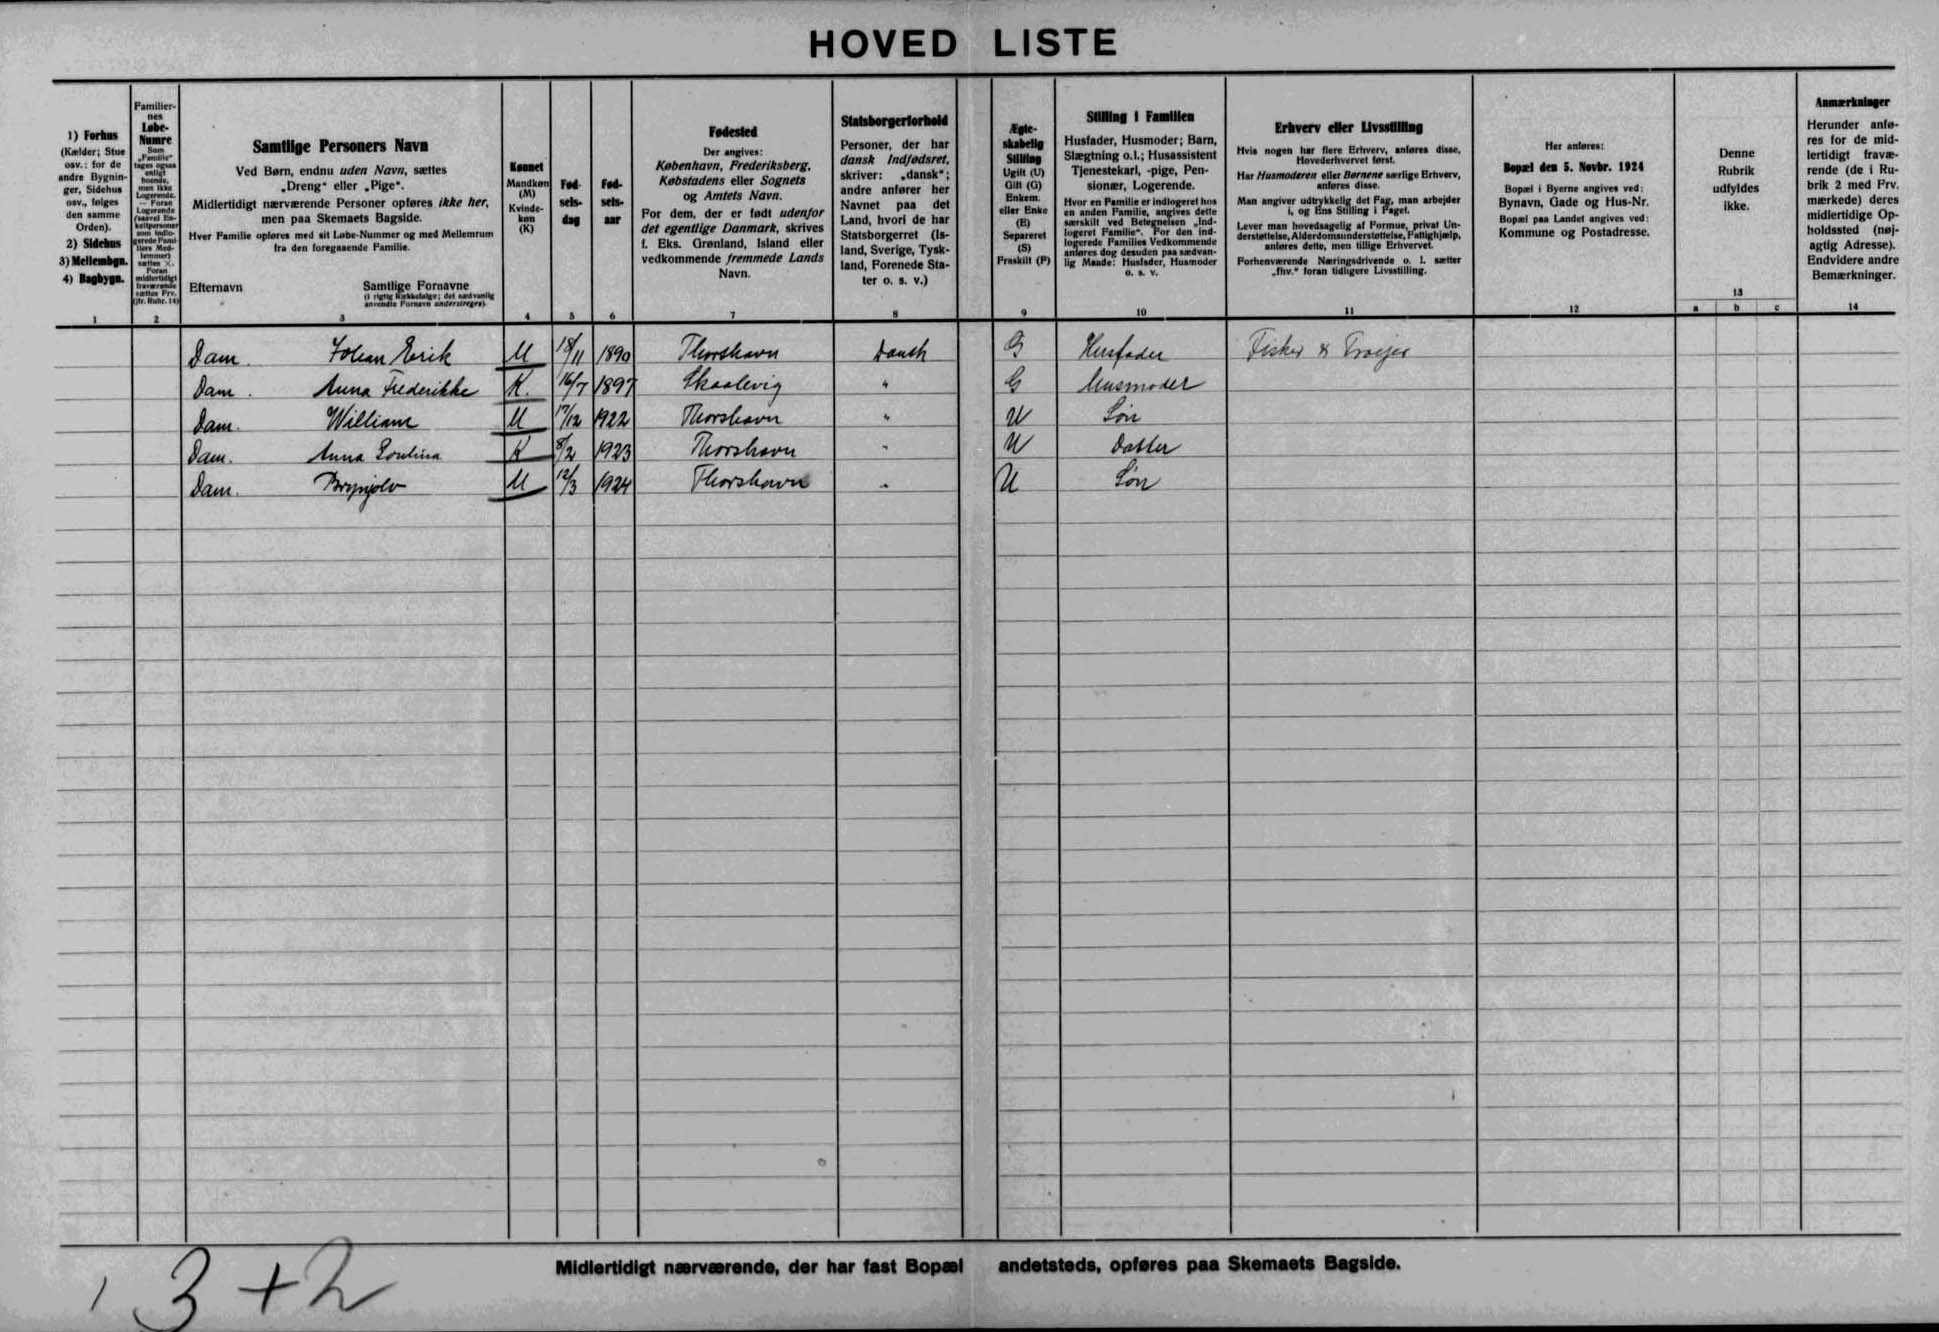 HOVED LISTE
1) Forhus
(Kælder; Stue
osv.: for de
andre Bygnin-
ger, Sidehus
osv., følges
den samme
Orden).
2) Sidehus
3) Mellembgn.
4) Bagbygn.
1
Familier-
nes
Løbe-
Numre
Som
„Familie“
tages ogsaa
enligt
boende,
men ikke
Logerende.
— Foran
Logerende
(saavel En-
keltpersoner
som indlo-
gerede Fami-
liers Med-
lemmer)
sættes ×.
Foran
midlertidigt
fraværende
sættes Frv.
(jfr. Rubr. 14)
2
Samtlige Personers Navn
Ved Børn, endnu uden Navn, sættes
„Dreng“ eller „Pige“.
Midlertidigt nærværende Personer opføres ikke her,
men paa Skemaets Bagside.
Hver Familie opføres med sit Løbe-Nummer og med Mellemrum
fra den foregaaende Familie.
Efternavn
Samtlige Fornavne
(i rigtig Rækkefølge; det sædvanlig
anvendte Fornavn understreges).
3
Kønnet
Mandkøn
(M)
Kvinde-
køn
(K)
4
Fød-
sels-
dag
5
Fød-
sels-
aar
6
Fødested
Der angives:
København, Frederiksberg,
Købstadens eller Sognets
og Amtets Navn.
For dem, der er født udenfor
det egentlige Danmark, skrives
f. Eks. Grønland, Island eller
vedkommende fremmede Lands
Navn.
7
Statsborgerforhold
Personer, der har
dansk Indfødsret,
skriver: „dansk“;
andre anfører her
Navnet paa det
Land, hvori de har
Statsborgerret (Is-
land, Sverige, Tysk-
land, Forenede Sta-
ter o. s. v.)
8
Ægte-
skabelig
Stilling
Ugift (U)
Gift (G)
Enkem.
eller Enke
(E)
Separeret
(S)
Fraskilt (F)
9
Stilling i Familien
Husfader, Husmoder; Barn,
Slægtning o.l.; Husassistent
Tjenestekarl, -pige, Pen-
sionær, Logerende.
Hvor en Familie er indlogeret hos
en anden Familie, angives dette
særskilt ved Betegnelsen „Ind-
logeret Familie“. For den ind-
logerede Families Vedkommende
anføres dog desuden paa sædvan-
lig Maade: Husfader, Husmoder
o. s. v.
10
Erhverv eller Livsstilling
Hvis nogen har flere Erhverv, anføres disse,
Hovederhvervet først.
Har Husmoderen eller Børnene særlige Erhverv,
anføres disse.
Man angiver udtrykkelig det Fag, man arbejder
i, og Ens Stilling i Faget.
Lever man hovedsagelig af Formue, privat Un-
derstøttelse, Alderdomsunderstøttelse, Fattighjælp,
anføres dette, men tillige Erhvervet.
Forhenværende Næringsdrivende o. l. sætter
„fhv.“ foran tidligere Livsstilling.
11
Her anføres:
Bopæl den 5. Novbr. 1924
Bopæl i Byerne angives ved:
Bynavn, Gade og Hus-Nr.
Bopæl paa Landet angives ved:
Kommune og Postadresse.
12
Denne
Rubrik
udfyldes
ikke.
13
a b c
Anmærkninger
Herunder anfø-
res for de mid-
lertidigt fravæ-
rende (de i Ru-
brik 2 med Frv.
mærkede) deres
midlertidige Op-
holdssted (nøj-
agtig Adresse).
Endvidere andre
Bemærkninger.
14
Dam. Johan Erik M 18/11 1890 Thorshavn Dansk G Husfader Fisker &
Dam. Anna Frederikke K. 16/7 1897 Skaalevig " G Husmoder
Dam. William M 17/12 1922 Thorshavn " U Søn
Dam. Anna Poulina K 8/2 1923 Thorshavn " U Datter
Dam. Brynjolv M 12/3 1924 Thorshavn " U Søn
Midlertidigt nærværende, der har fast Bopæl andetsteds, opføres paa Skemaets Bagside.
3 + 2